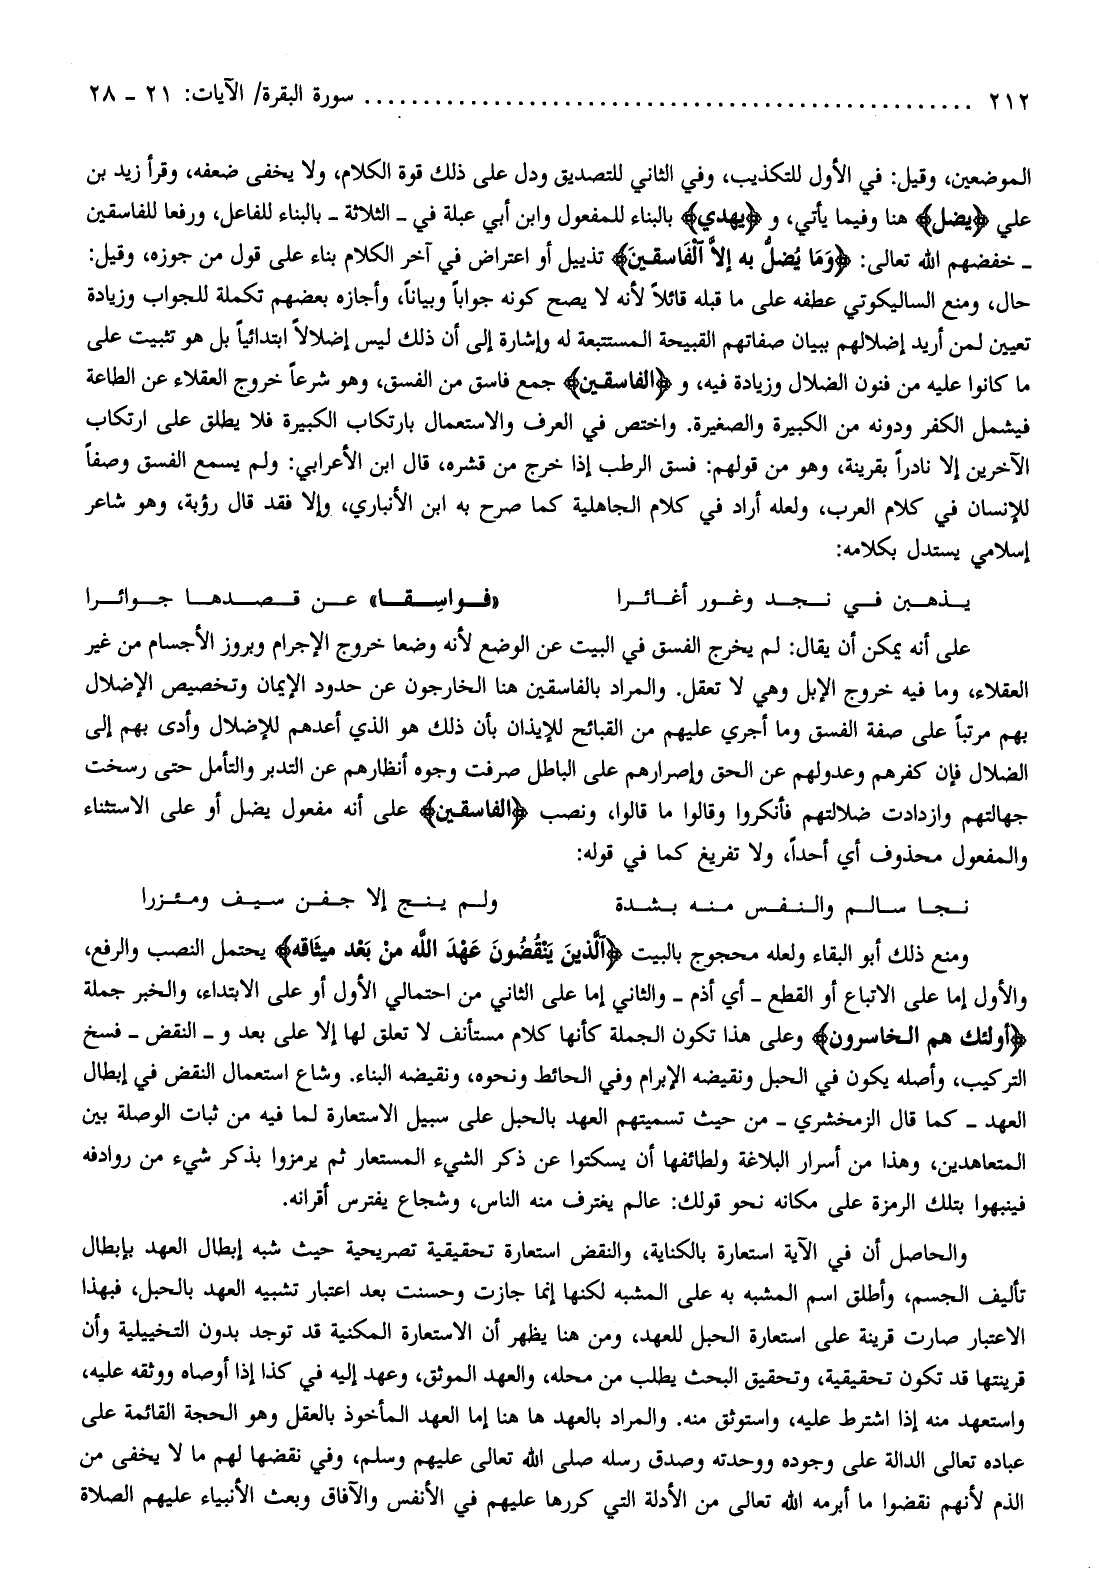 ٢١٢ .................................................... سورة البقرة/ الآيات: ٢١ - ٢٨
الموضعين، وقيل: في الأول للتكذيب، وفي الثاني للتصديق ودل على ذلك قوة الكلام، ولا يخفى ضعفه، وقرأ زيد بن
علي ﴿يضل﴾ هنا وفيما يأتي، و ﴿يهدي﴾ بالبناء للمفعول وابن أبي عبلة في - الثلاثة - بالبناء للفاعل، ورفعا للفاسقين
- خفضهم الله تعالى: ﴿وَمَا يُضلُّ به إلاَّ ٱلْفَاسقينَ﴾ تذييل أو اعتراض في آخر الكلام بناء على قول من جوزه، وقيل:
حال، ومنع الساليكوتي عطفه على ما قبله قائلاً لأنه لا يصح كونه جواباً وبياناً، وأجازه بعضهم تكملة للجواب وزيادة
تعيين لمن أريد إضلالهم ببيان صفاتهم القبيحة المستتبعة له وإشارة إلى أن ذلك ليس إضلالاً ابتدائياً بل هو تثبيت على
ما كانوا عليه من فنون الضلال وزيادة فيه، و ﴿الفاسقين﴾ جمع فاسق من الفسق، وهو شرعاً خروج العقلاء عن الطاعة
فيشمل الكفر ودونه من الكبيرة والصغيرة. واختص في العرف والاستعمال بارتكاب الكبيرة فلا يطلق على ارتكاب
الآخرين إلا نادراً بقرينة، وهو من قولهم: فسق الرطب إذا خرج من قشره، قال ابن الأعرابي: ولم يسمع الفسق وصفاً
للإنسان في كلام العرب، ولعله أراد في كلام الجاهلية كما صرح به ابن الأنباري، وإلا فقد قال رؤبة، وهو شاعر
إسلامي يستدل بكلامه:
يـذهبـن فـي نـجـد وغـور أغـائـرا «فـواسِـقـا» عـن قـصـدهـا جـوائـرا
على أنه يمكن أن يقال: لم يخرج الفسق في البيت عن الوضع لأنه وضعا خروج الإجرام وبروز الأجسام من غير
العقلاء، وما فيه خروج الإبل وهي لا تعقل. والمراد بالفاسقين هنا الخارجون عن حدود الإيمان وتخصيص الإضلال
بهم مرتباً على صفة الفسق وما أجري عليهم من القبائح للإيذان بأن ذلك هو الذي أعدهم للإضلال وأدى بهم إلى
الضلال فإن كفرهم وعدولهم عن الحق وإصرارهم على الباطل صرفت وجوه أنظارهم عن التدبر والتأمل حتى رسخت
جهالتهم وازدادت ضلالتهم فأنكروا وقالوا ما قالوا، ونصب ﴿الفاسقين﴾ على أنه مفعول يضل أو على الاستثناء
والمفعول محذوف أي أحداً، ولا تفريغ كما في قوله:
نـجـا سـالـم والـنـفـس مـنـه بـشـدة ولـم يـنـج إلا جـفـن سـيـف ومـئـزرا
ومنع ذلك أبو البقاء ولعله محجوج بالبيت ﴿ٱلَّذينَ يَنْقُضُونَ عَهْدَ اللَّه منْ بَعْد ميثَاقه﴾ يحتمل النصب والرفع،
والأول إما على الاتباع أو القطع - أي أذم - والثاني إما على الثاني من احتمالي الأول أو على الابتداء، والخبر جملة
﴿أولئك هم الخاسرون﴾ وعلى هذا تكون الجملة كأنها كلام مستأنف لا تعلق لها إلا على بعد و - النقض - فسخ
التركيب، وأصله يكون في الحبل ونقيضه الإبرام وفي الحائط ونحوه، ونقيضه البناء. وشاع استعمال النقض في إبطال
العهد - كما قال الزمخشري - من حيث تسميتهم العهد بالحبل على سبيل الاستعارة لما فيه من ثبات الوصلة بين
المتعاهدين، وهذا من أسرار البلاغة ولطائفها أن يسكتوا عن ذكر الشيء المستعار ثم يرمزوا بذكر شيء من روادفه
فينبهوا بتلك الرمزة على مكانه نحو قولك: عالم يغترف منه الناس، وشجاع يفترس أقرانه.
والحاصل أن في الآية استعارة بالكناية، والنقض استعارة تحقيقية تصريحية حيث شبه إبطال العهد بإبطال
تأليف الجسم، وأطلق اسم المشبه به على المشبه لكنها إنما جازت وحسنت بعد اعتبار تشبيه العهد بالحبل، فبهذا
الاعتبار صارت قرينة على استعارة الحبل للعهد، ومن هنا يظهر أن الاستعارة المكنية قد توجد بدون التخييلية وأن
قرينتها قد تكون تحقيقية، وتحقيق البحث يطلب من محله، والعهد الموثق، وعهد إليه في كذا إذا أوصاه ووثقه عليه،
واستعهد منه إذا اشترط عليه، واستوثق منه. والمراد بالعهد ها هنا إما العهد المأخوذ بالعقل وهو الحجة القائمة على
عباده تعالى الدالة على وجوده ووحدته وصدق رسله صلى الله تعالى عليهم وسلم، وفي نقضها لهم ما لا يخفى من
الذم لأنهم نقضوا ما أبرمه الله تعالى من الأدلة التي كررها عليهم في الأنفس والآفاق وبعث الأنبياء عليهم الصلاة